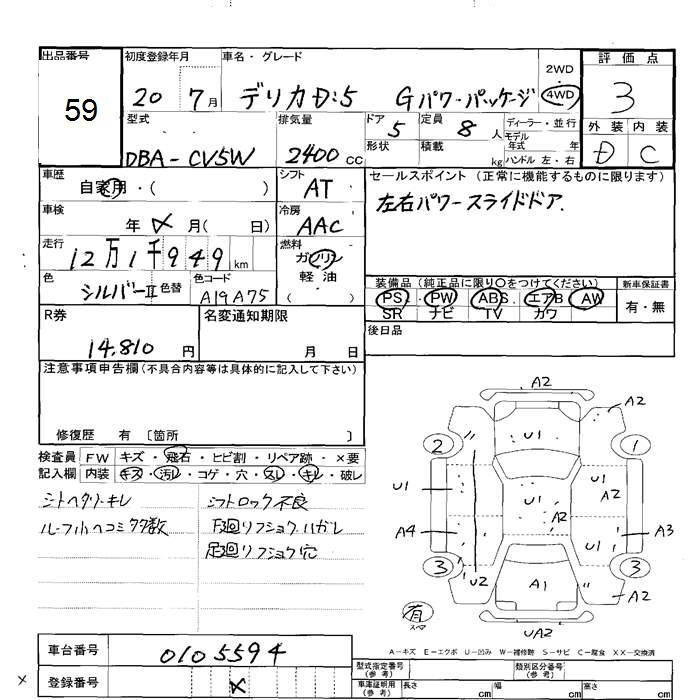 出品番号 初度登録年月 車名・グレード 2WD・4WD 評価点
59 20 7月 デリカD:5 Gパワーパッケージ 3
型式 排気量 ドア 定員 ディーラー・並行 外装 内装
DBA-CV5W 2400cc 5 8人 モデル年式 年 D C
形状 積載 kg ハンドル 左・右
車歴 シフト セールスポイント (正常に機能するものに限ります)
自家用・( ) AT 左右パワースライドドア.
車検 冷房
年 月( 日) AAC
走行 燃料
12万1千949km ガソリン
軽油
( )
色 色替 色コード 装備品(純正品に限り○をつけてください) 新車保証書
シルバーII A19A75 PS・PW・ABS・エアB・AW 有・無
SR ナビ TV カワ
R券 名変通知期限 後日品
14,810円 月 日
注意事項申告欄(不具合内容等は具体的に記入して下さい)
修復歴 有 〔箇所 〕
検査員 FW キズ・飛石・ヒビ割・リペア跡・×要
記入欄 内装 キズ・汚レ・コゲ・穴・スレ・キレ・破レ
シートヘタリ・キレ シフトロック不良
ルーフ小ヘコミ多数 下回リフショクハガレ
足回リフショク穴
A2
U1 A2
2 1
U1 U1
A4 A2 A3
U1
3 3
U2 A1
A2
有
スペア
UA2
A-キズ E-エクボ U-凹み W-補修跡 S-サビ C-腐食 XX-交換済
車台番号 0105594
登録番号 ×
型式指定番号(参考) 類別区分番号(参考)
車庫証明用(参考) 長さ cm 幅 cm 高さ cm